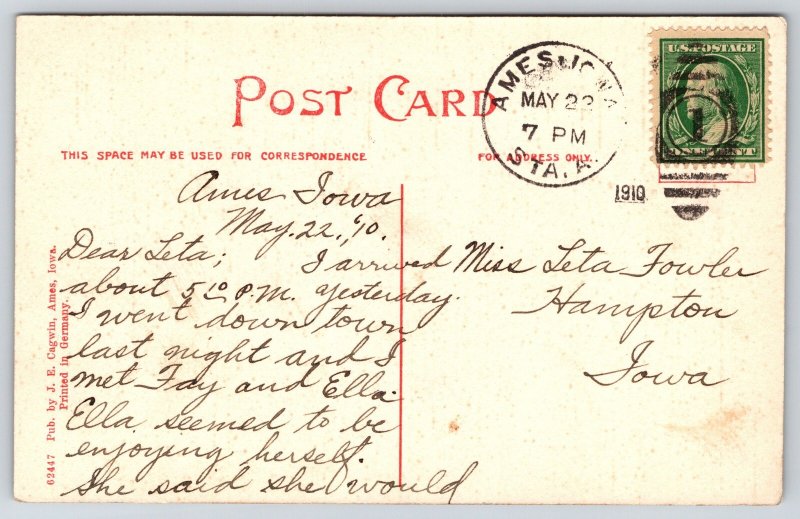 POST CARD
THIS SPACE MAY BE USED FOR CORRESPONDENCE
FOR ADDRESS ONLY.
AMES, IOWA
MAY 22
7 PM
STA. A
1910
U.S. POSTAGE
1
Ames Iowa
May. 22, '10.
Dear Leta; I arrived
about 5 10 P.M. yesterday.
I went down town
last night and I
met Fay and Ella.
Ella seemed to be
enjoying herself.
She said she would
Miss Leta Fowler
Hampton
Iowa
62447 Pub. by J. E. Cagwin, Ames, Iowa.
Printed in Germany.